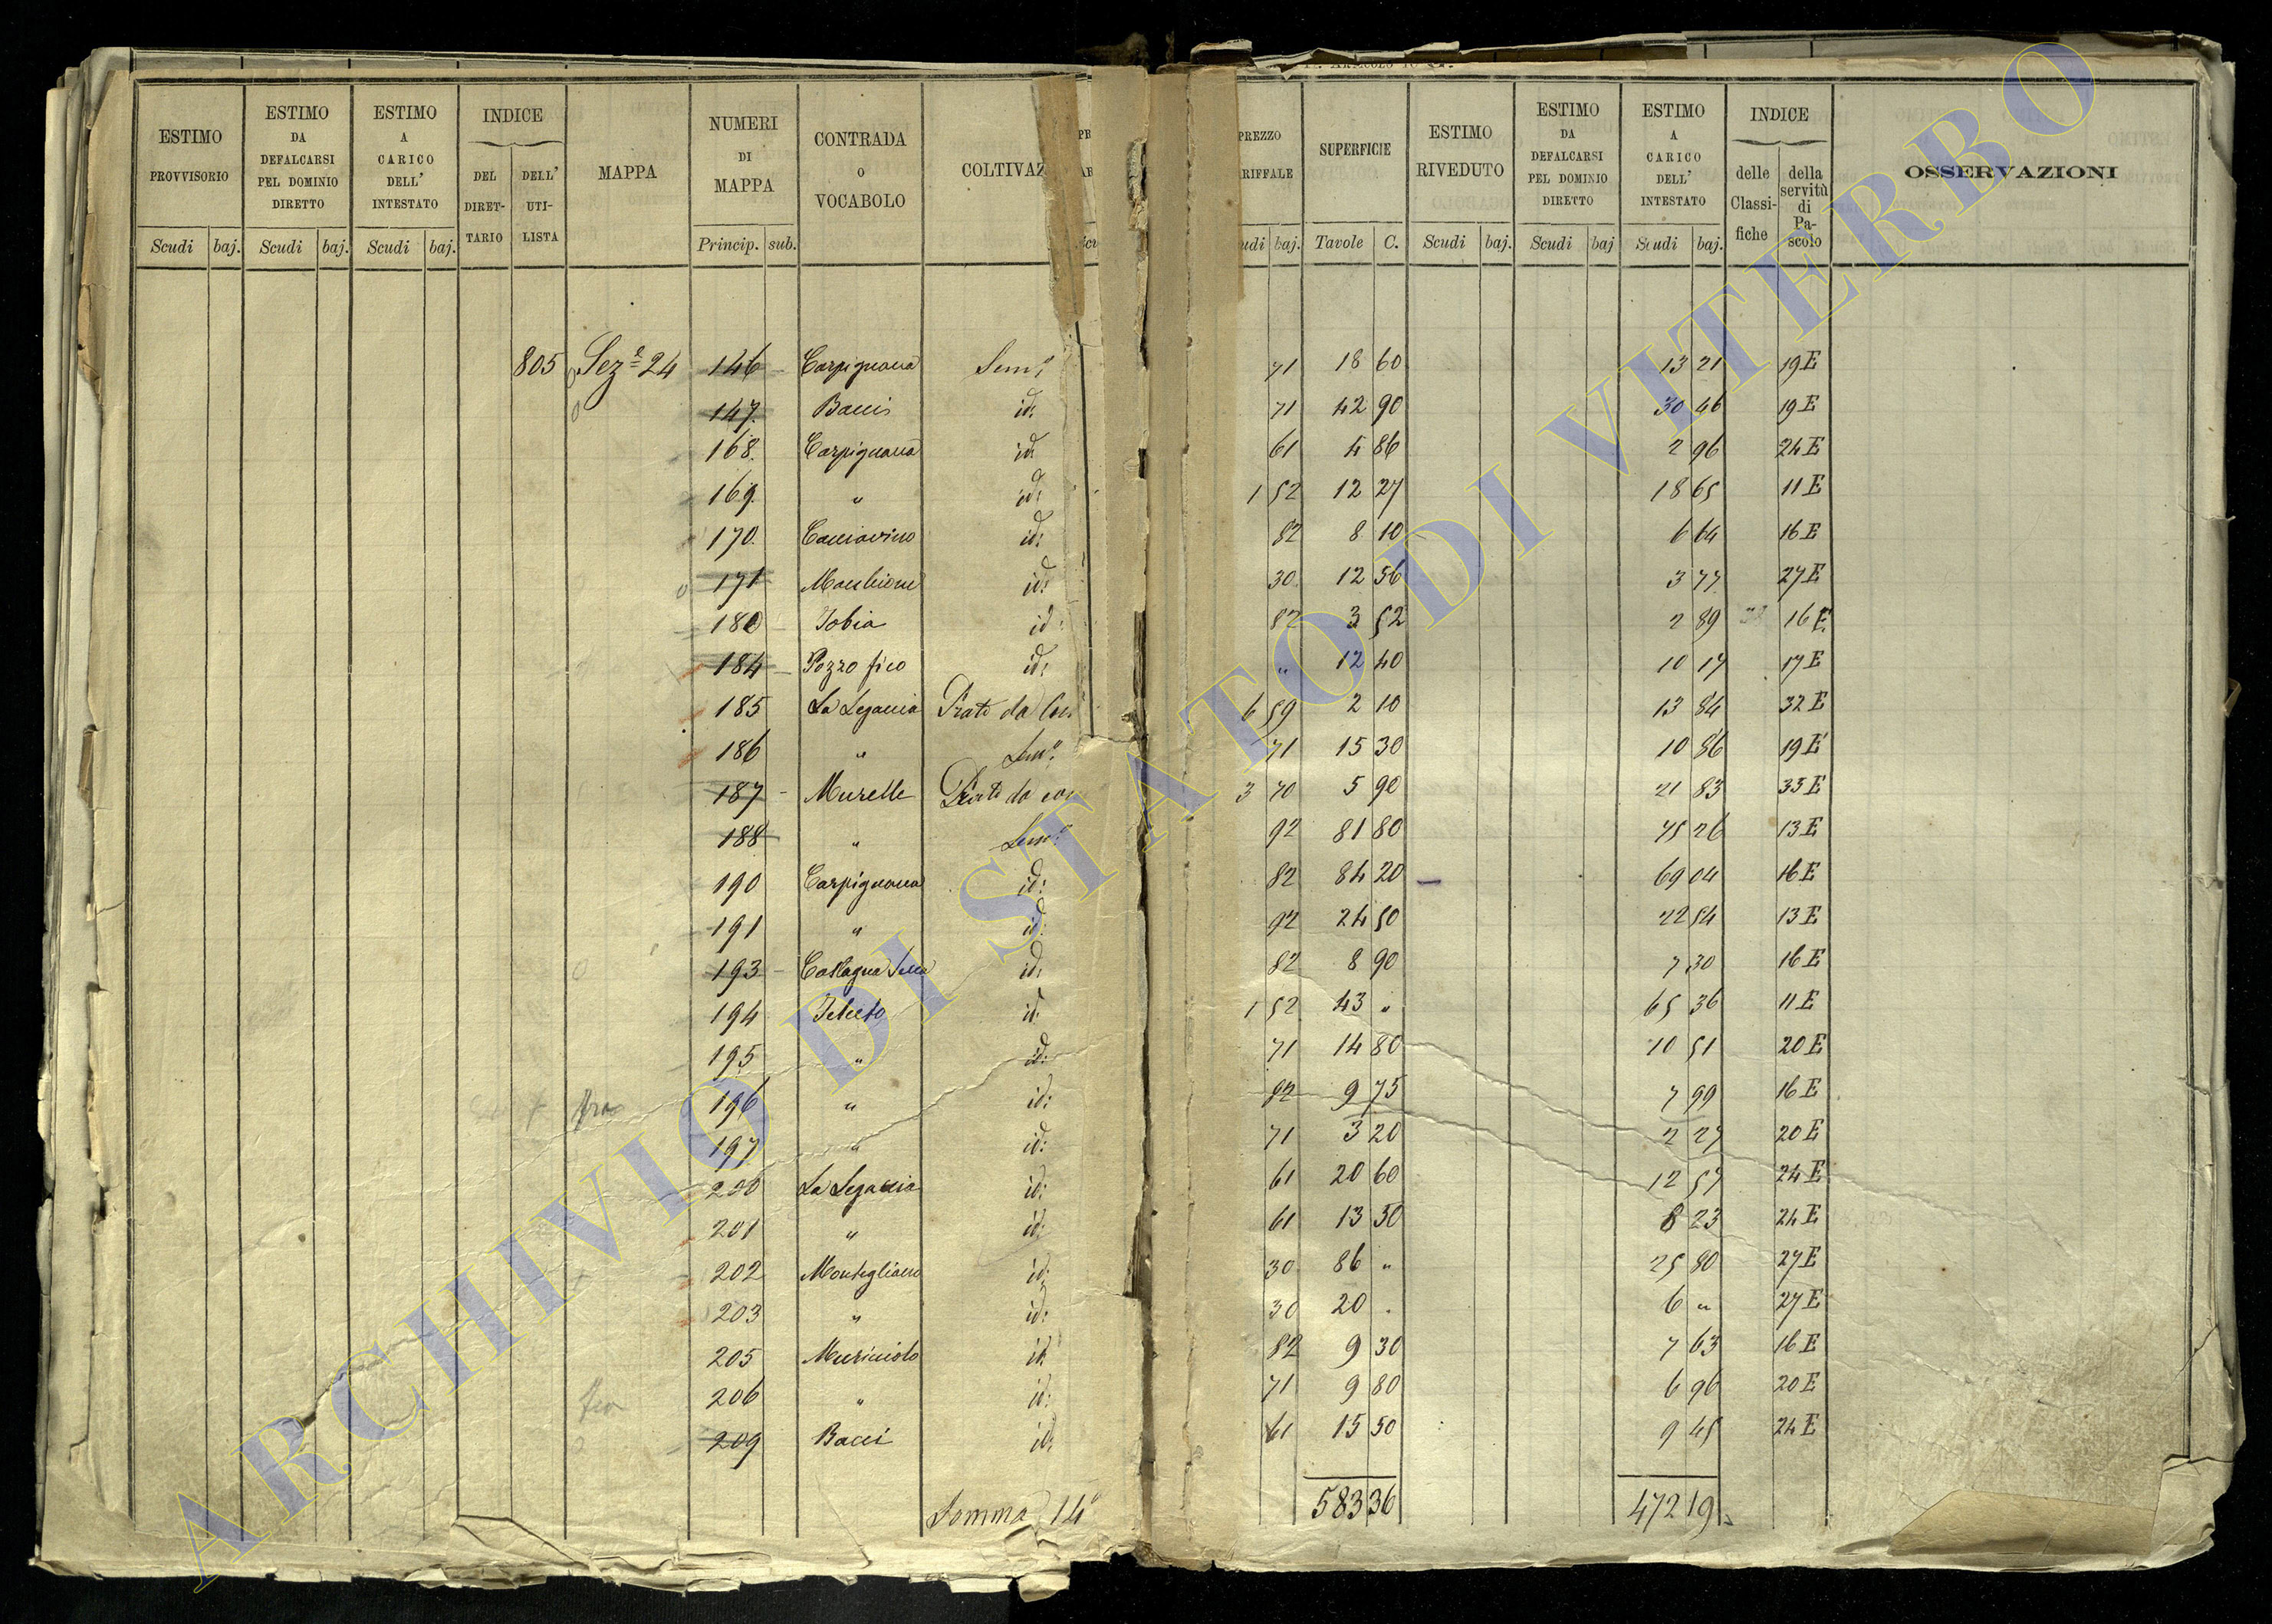 ESTIMO PROVVISORIO Scudi baj.
ESTIMO DA DEFALCARSI PEL DOMINIO DIRETTO Scudi baj.
ESTIMO A CARICO DELL' INTESTATO Scudi baj.
INDICE DEL DIRET- TARIO DELL' UTI- LISTA
MAPPA
NUMERI DI MAPPA Princip. sub.
CONTRADA O VOCABOLO
COLTIVAZ
PREZZO RIFFALE udi baj.
SUPERFICIE Tavole C.
ESTIMO RIVEDUTO Scudi baj.
ESTIMO DA DEFALCARSI PEL DOMINIO DIRETTO Scudi baj
ESTIMO A CARICO DELL' INTESTATO Scudi baj.
INDICE delle Classi- fiche della servitù di Pa- scolo
OSSERVAZIONI
805 Seze 24 146 Carpignana Semo 71 18 60 13 21 19 E
147. Baccis id: 71 42 90 30 46 19 E
168. Carpignana id. 61 4 86 2 96 24 E
169. " id: 1 52 12 27 18 65 11 E
170. Cacciavino id: 82 8 10 6 64 16 E
171 id: 30 12 56 3 77 27 E
180 Tobia id: 82 3 52 2 89 16 E
184 Pozzo fico id: " 12 40 10 17 17 E
185 La Legaccia Prato da 6 59 2 10 13 84 32 E
186 " Semo 71 15 30 10 86 19 E
187 Murelle Prato da 3 70 5 90 21 83 33 E
188 " Semo 92 81 80 75 26 13 E
190 Carpignana id: 82 84 20 69 04 16 E
191 " id: 92 24 50 22 54 13 E
193 id: 82 8 90 7 30 16 E
194 id: 1 52 43 " 65 36 11 E
195 " id: 71 14 80 10 51 20 E
196 " id: 82 9 75 7 99 16 E
197 " id: 71 3 20 2 27 20 E
200 La Legaccia id: 61 20 60 12 57 24 E
201 " id: 61 13 50 8 23 24 E
202 Montigliano id: 30 86 " 25 80 27 E
203 " id: 30 20 . 6 " 27 E
205 Muricciolo id. 82 9 30 7 63 16 E
206 " id: 71 9 80 6 96 20 E
209 Bacci id: 61 15 50 9 45 24 E
Somma 14a 583 36 472 19
ARCHIVIO DI STATO DI VITERBO